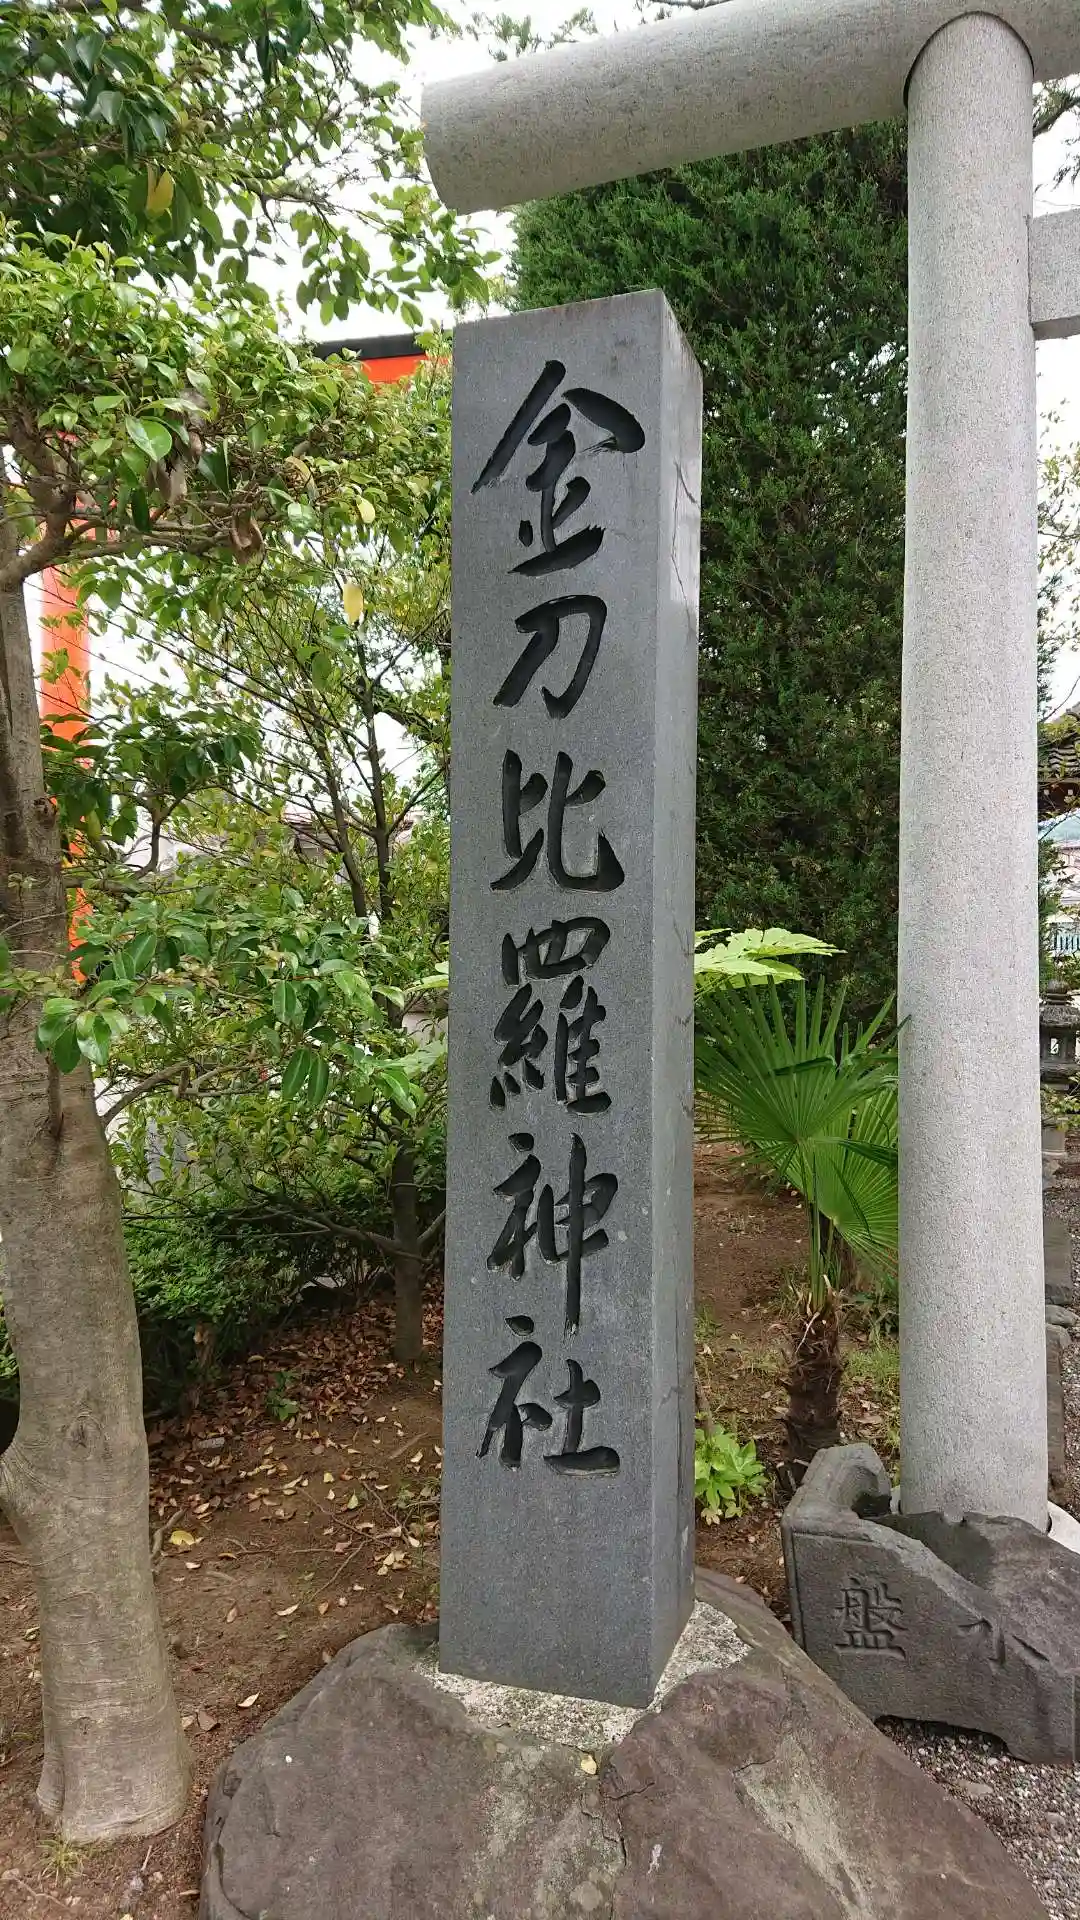 金刀比羅神社
水盤